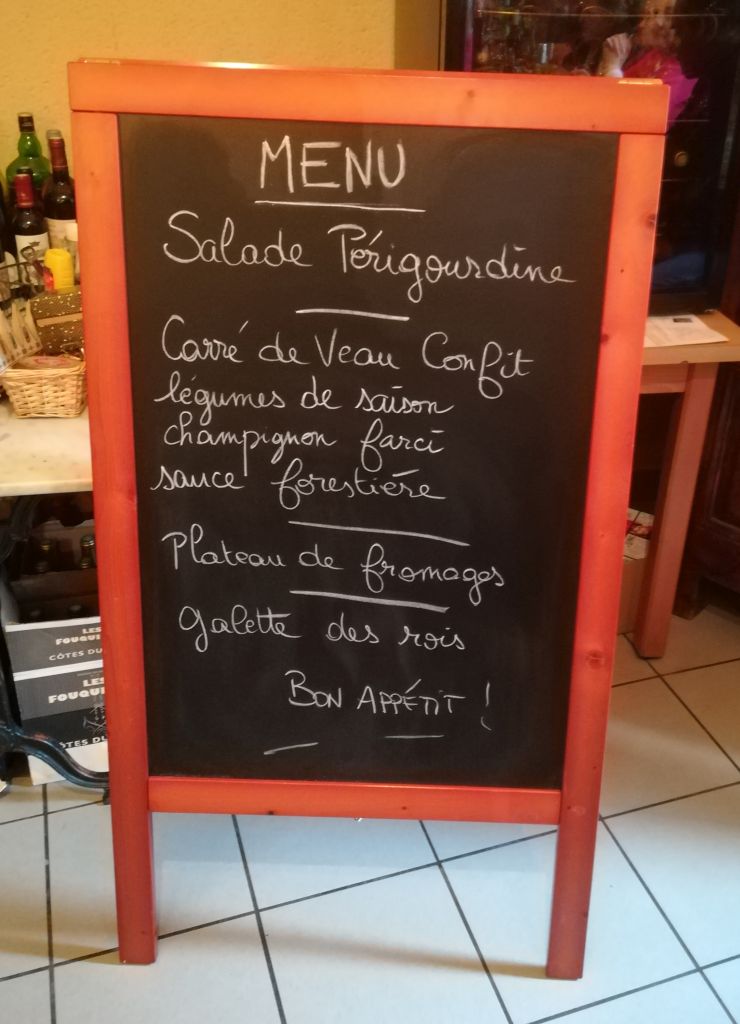 MENU
Salade Périgourdine
Carré de Veau Confit
légumes de saison
champignon farci
sauce forestière
Plateau de fromages
galette des rois
BON APPÉTIT !
LES
FOUQUE
CÔTES DU
LES
FOUQU
ÔTES DU